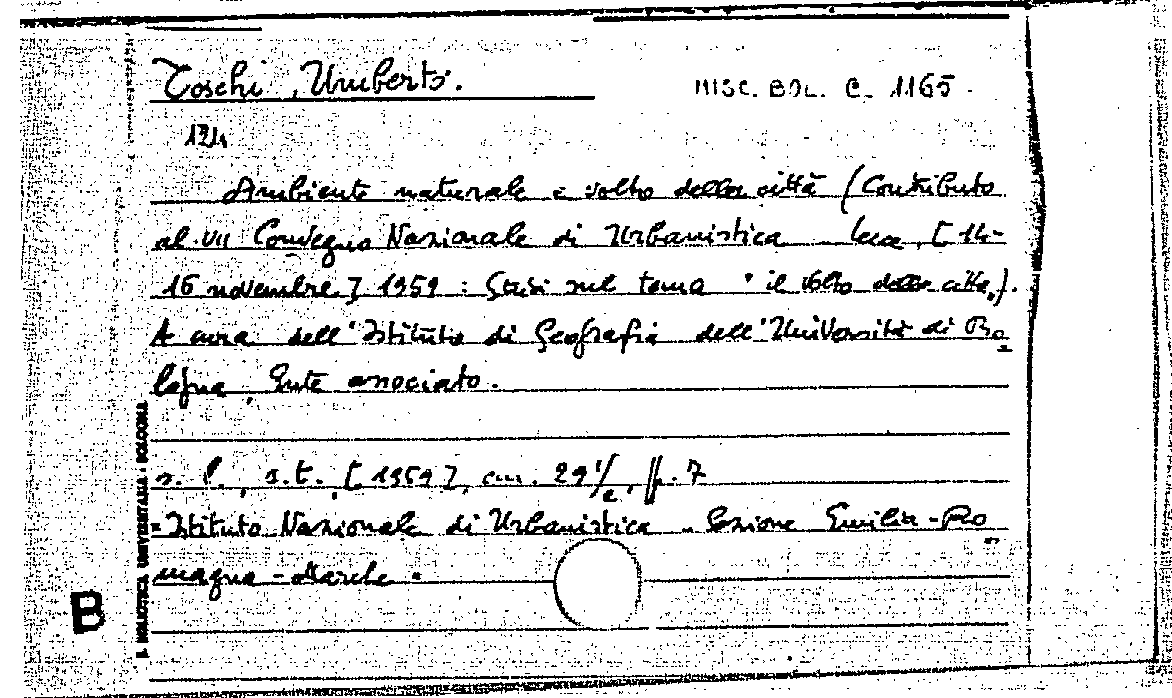 Toschi, Umberto.
MISC. BOL. C. 1165.
Ambiente naturale e volto della città (Contributo
al VII Convegno Nazionale di Urbanistica - Lecce, [14-
16 novembre] 1959 : Studi sul tema " il volto della città„).
A cura dell'Istituto di Geografia dell'Università di Bo
logna, Ente associato.
s. l., s.t., [1959], cm. 29½, pp. 7
=Istituto Nazionale di Urbanistica - Sezione Emilia-Ro
magna-Marche=
B
B. BIBLIOTECA UNIVERSITARIA - BOLOGNA